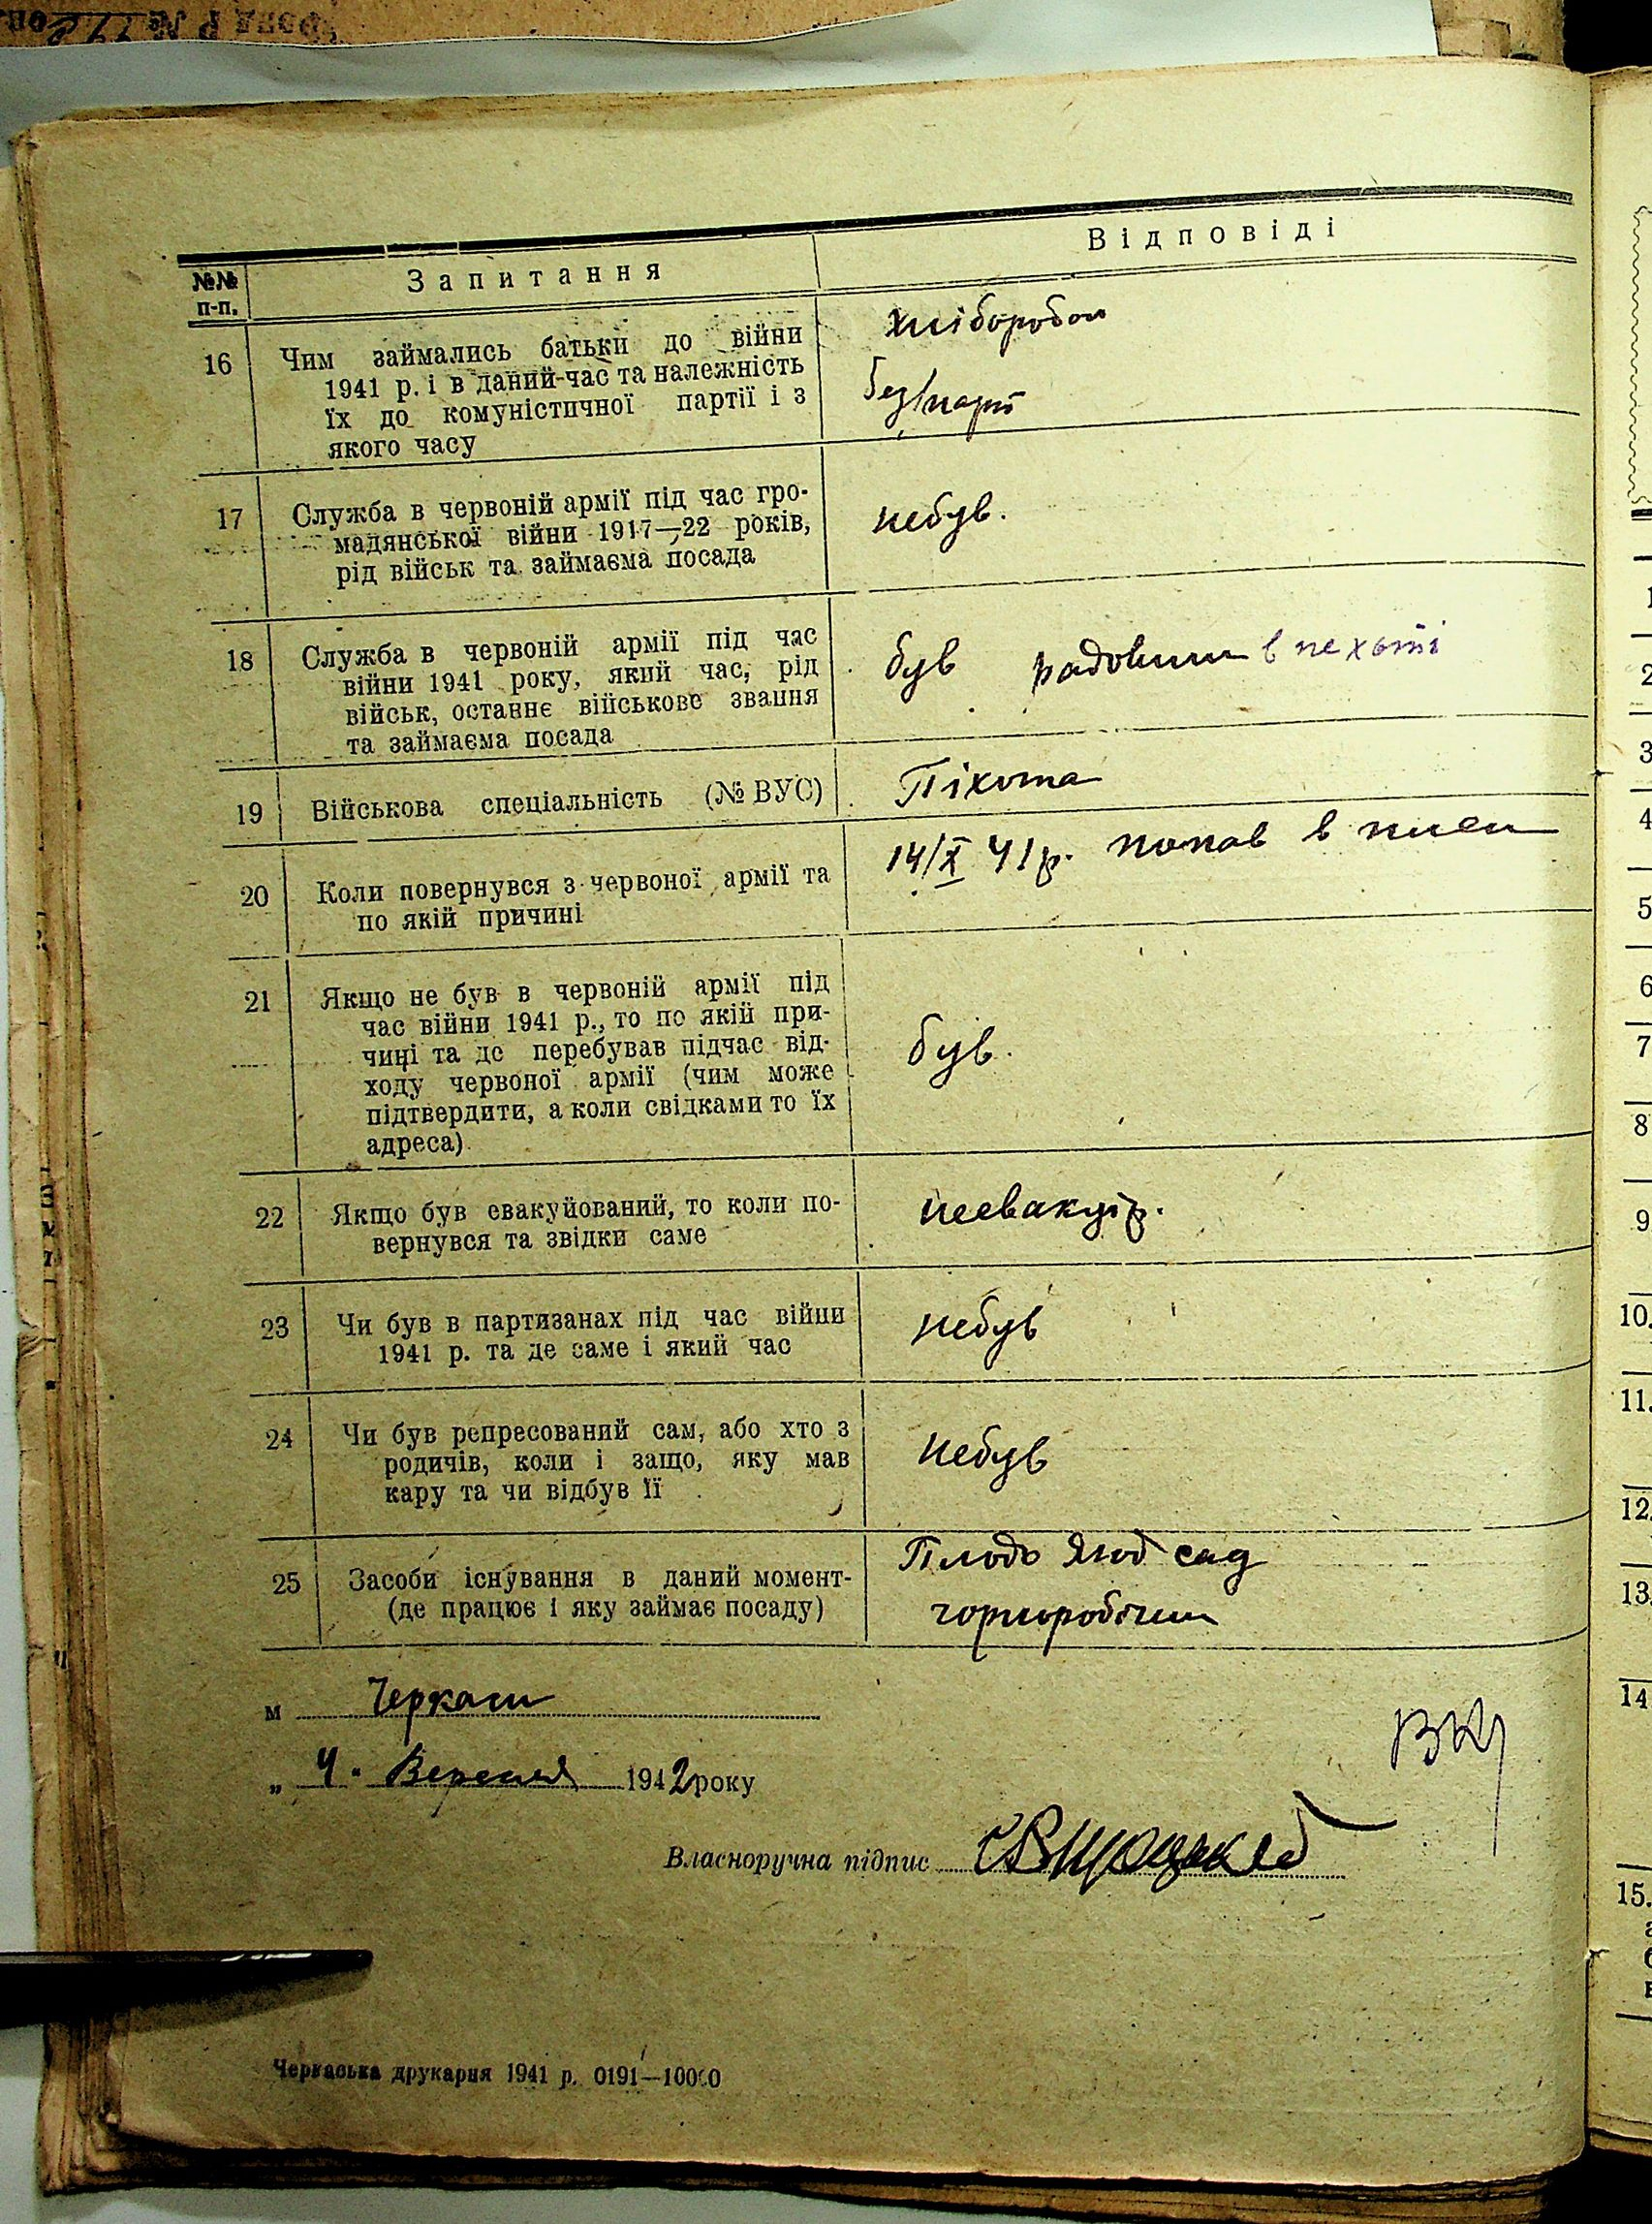 №№ п-п.
Запитання
Відповіді
16
Чим займались батьки до війни
1941 р. і в даний час та належність
їх до комуністичної партії і з
якого часу
хлібороби
без/парт
17
Служба в червоній армії під час гро-
мадянської війни 1917—22 років,
рід військ та займаєма посада
небув.
18
Служба в червоній армії під час
війни 1941 року, який час, рід
військ, останнє військове звання
та займаєма посада
був радовим в пехоті
19
Військова спеціальність (№ ВУС)
Піхота
20
Коли повернувся з червоної армії та
по якій причині
14/X 41р. попав в плен
21
Якщо не був в червоній армії під
час війни 1941 р., то по якій при-
чині та де перебував підчас від-
ходу червоної армії (чим може
підтвердити, а коли свідками то їх
адреса)
був.
22
Якщо був евакуйований, то коли по-
вернувся та звідки саме
неевакуір.
23
Чи був в партизанах під час війни
1941 р. та де саме і який час
небув
24
Чи був репресований сам, або хто з
родичів, коли і защо, яку мав
кару та чи відбув її
небув
25
Засоби існування в даний момент-
(де працює і яку займає посаду)
Плодо Ягод сад
чорноробочим
м Черкаси
„ 4. Вересня 1942 року
Власноручна підпис
Черкаська друкарня 1941 р. 0191—10000
1
2
3
4
5
6
7
8
9
10.
11.
12.
13.
14
15.